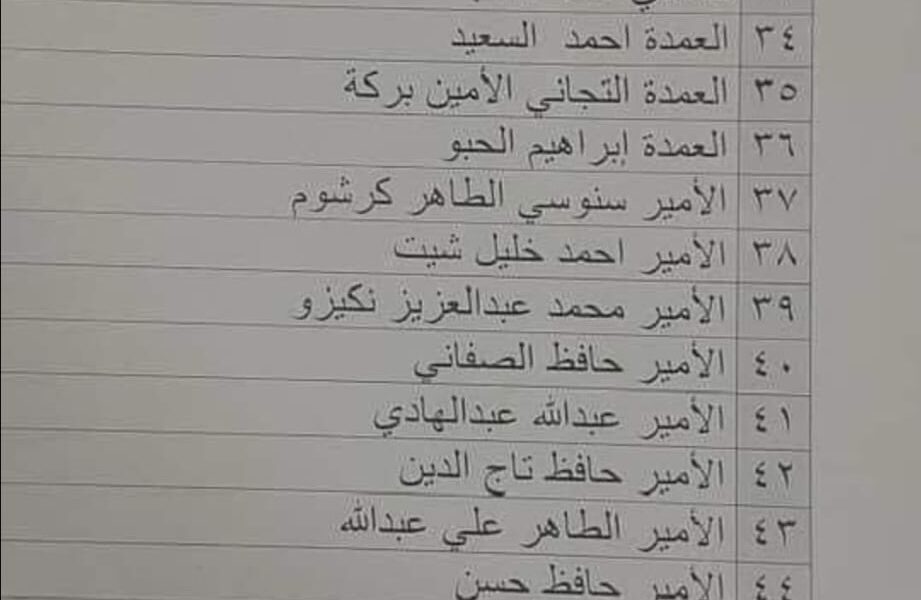 ٣٤ العمدة احمد السعيد
٣٥ العمدة التجاني الأمين بركة
٣٦ العمدة إبراهيم الحبو
٣٧ الأمير سنوسي الطاهر كرشوم
٣٨ الأمير احمد خليل شيت
٣٩ الأمير محمد عبدالعزيز نكيزو
٤٠ الأمير حافظ الصفاني
٤١ الأمير عبدالله عبدالهادي
٤٢ الأمير حافظ تاج الدين
٤٣ الأمير الطاهر علي عبدالله
٤٤ الأمير حافظ حسن